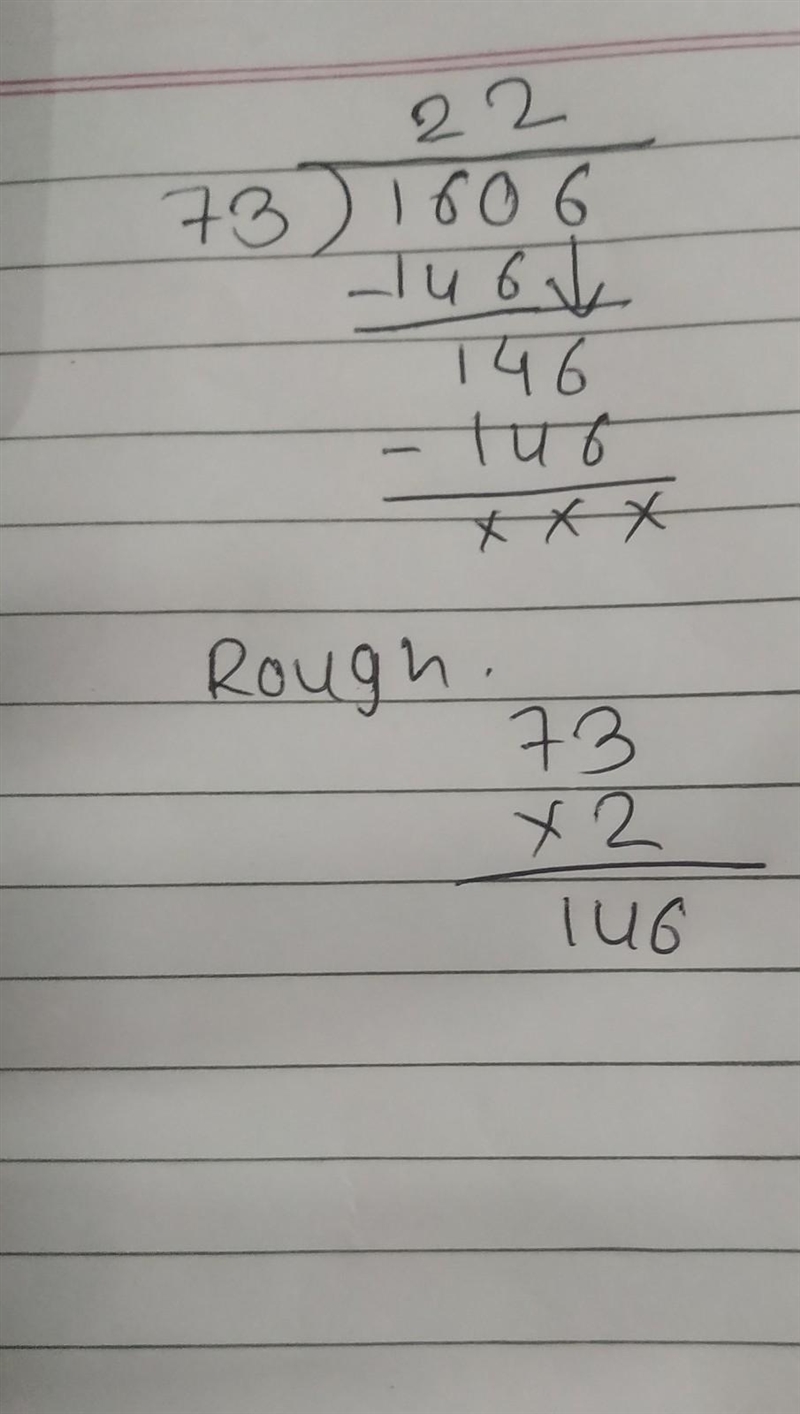 22
73)1606
-146↓
146
-146
xxx
Rough.
73
x2
146